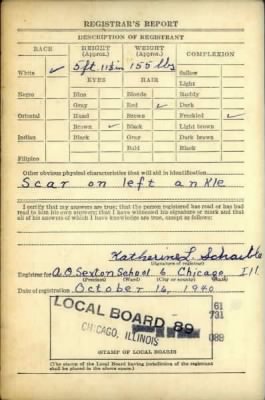 REGISTRAR'S REPORT
DESCRIPTION OF REGISTRANT
RACE HEIGHT (Approx.) WEIGHT (Approx.) COMPLEXION
White ✓ 5ft. 11½in 155 lbs Sallow
Light
EYES HAIR
Negro Blue Blonde Ruddy
Gray Red ✓ Dark
Oriental Hazel Brown Freckled ✓
Brown ✓ Black Light brown
Indian Black Gray Dark brown
Bald Black
Filipino
Other obvious physical characteristics that will aid in identification
Scar on left ankle
I certify that my answers are true; that the person registered has read or has had
read to him his own answers; that I have witnessed his signature or mark and that
all of his answers of which I have knowledge are true, except as follows:
Katherine L. Schaible
(Signature of registrar)
Registrar for A.O. Sexton School 6 Chicago Ill.
(Precinct) (Ward) (City or county) (State)
Date of registration October 16, 1940
LOCAL BOARD 89
CHICAGO, ILLINOIS
61
731
089
(STAMP OF LOCAL BOARD)
(The stamp of the Local Board having jurisdiction of the registrant
shall be placed in the above space.)